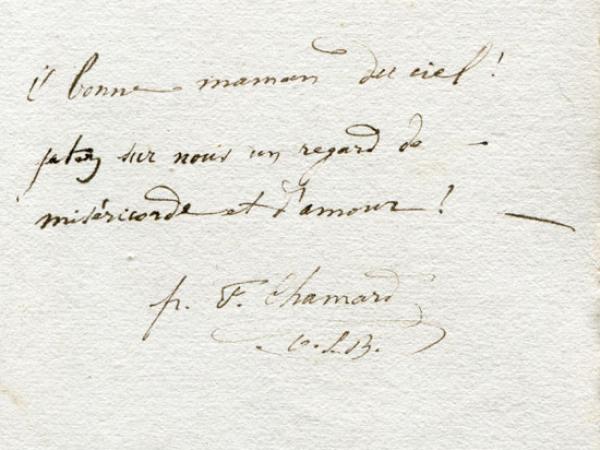 ô bonne maman du ciel !
jetez sur nous un regard de
miséricorde et d'amour !
fr. F. Chamard
O.S.B.